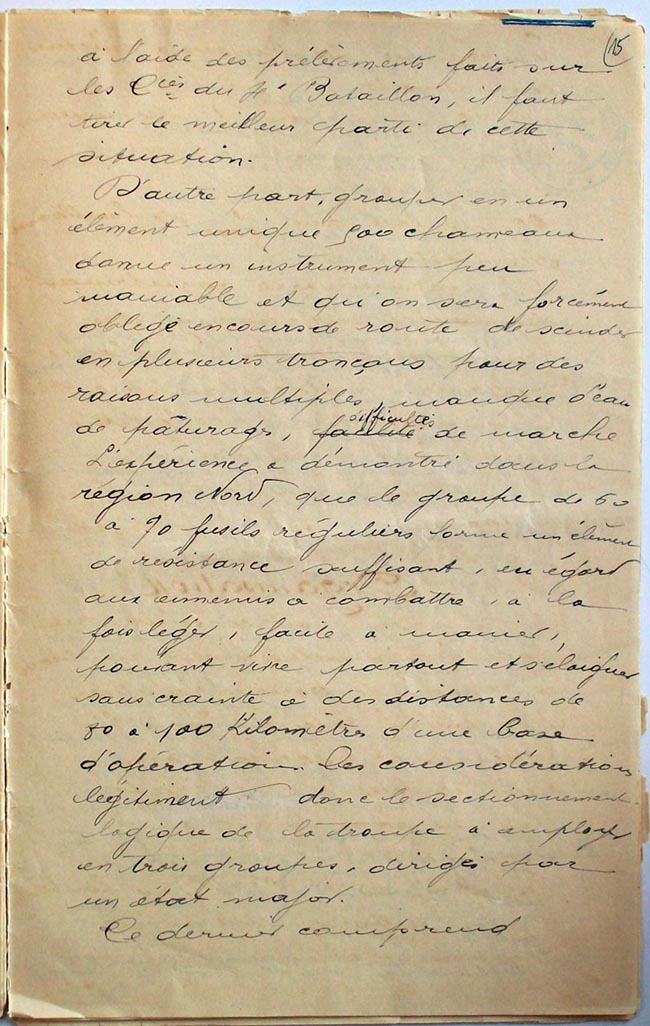 15
à l'aide des prélèvements faits sur
les Cies du 4e Bataillon, il faut
tirer le meilleur parti de cette
situation.
D'autre part, grouper en un
élément unique 500 chameaux
donne un instrument peu
maniable et qu'on sera forcément
obligé en cours de route de scinder
en plusieurs tronçons pour des
raisons multiples, manque d'eau
de pâturages, facilité difficultés de marche
L'expérience a démontré dans la
région Nord, que le groupe de 60
à 70 fusils réguliers forme un élément
de résistance suffisant, eu égard
aux ennemis à combattre, à la
fois léger, facile à manier,
pouvant vivre partout et s'éloigner
sans crainte à des distances de
80 à 100 Kilomètres d'une base
d'opération. Ces considérations
légitiment donc le sectionnement
logique de la troupe à employer
en trois groupes, dirigés par
un état major.
Ce dernier comprend